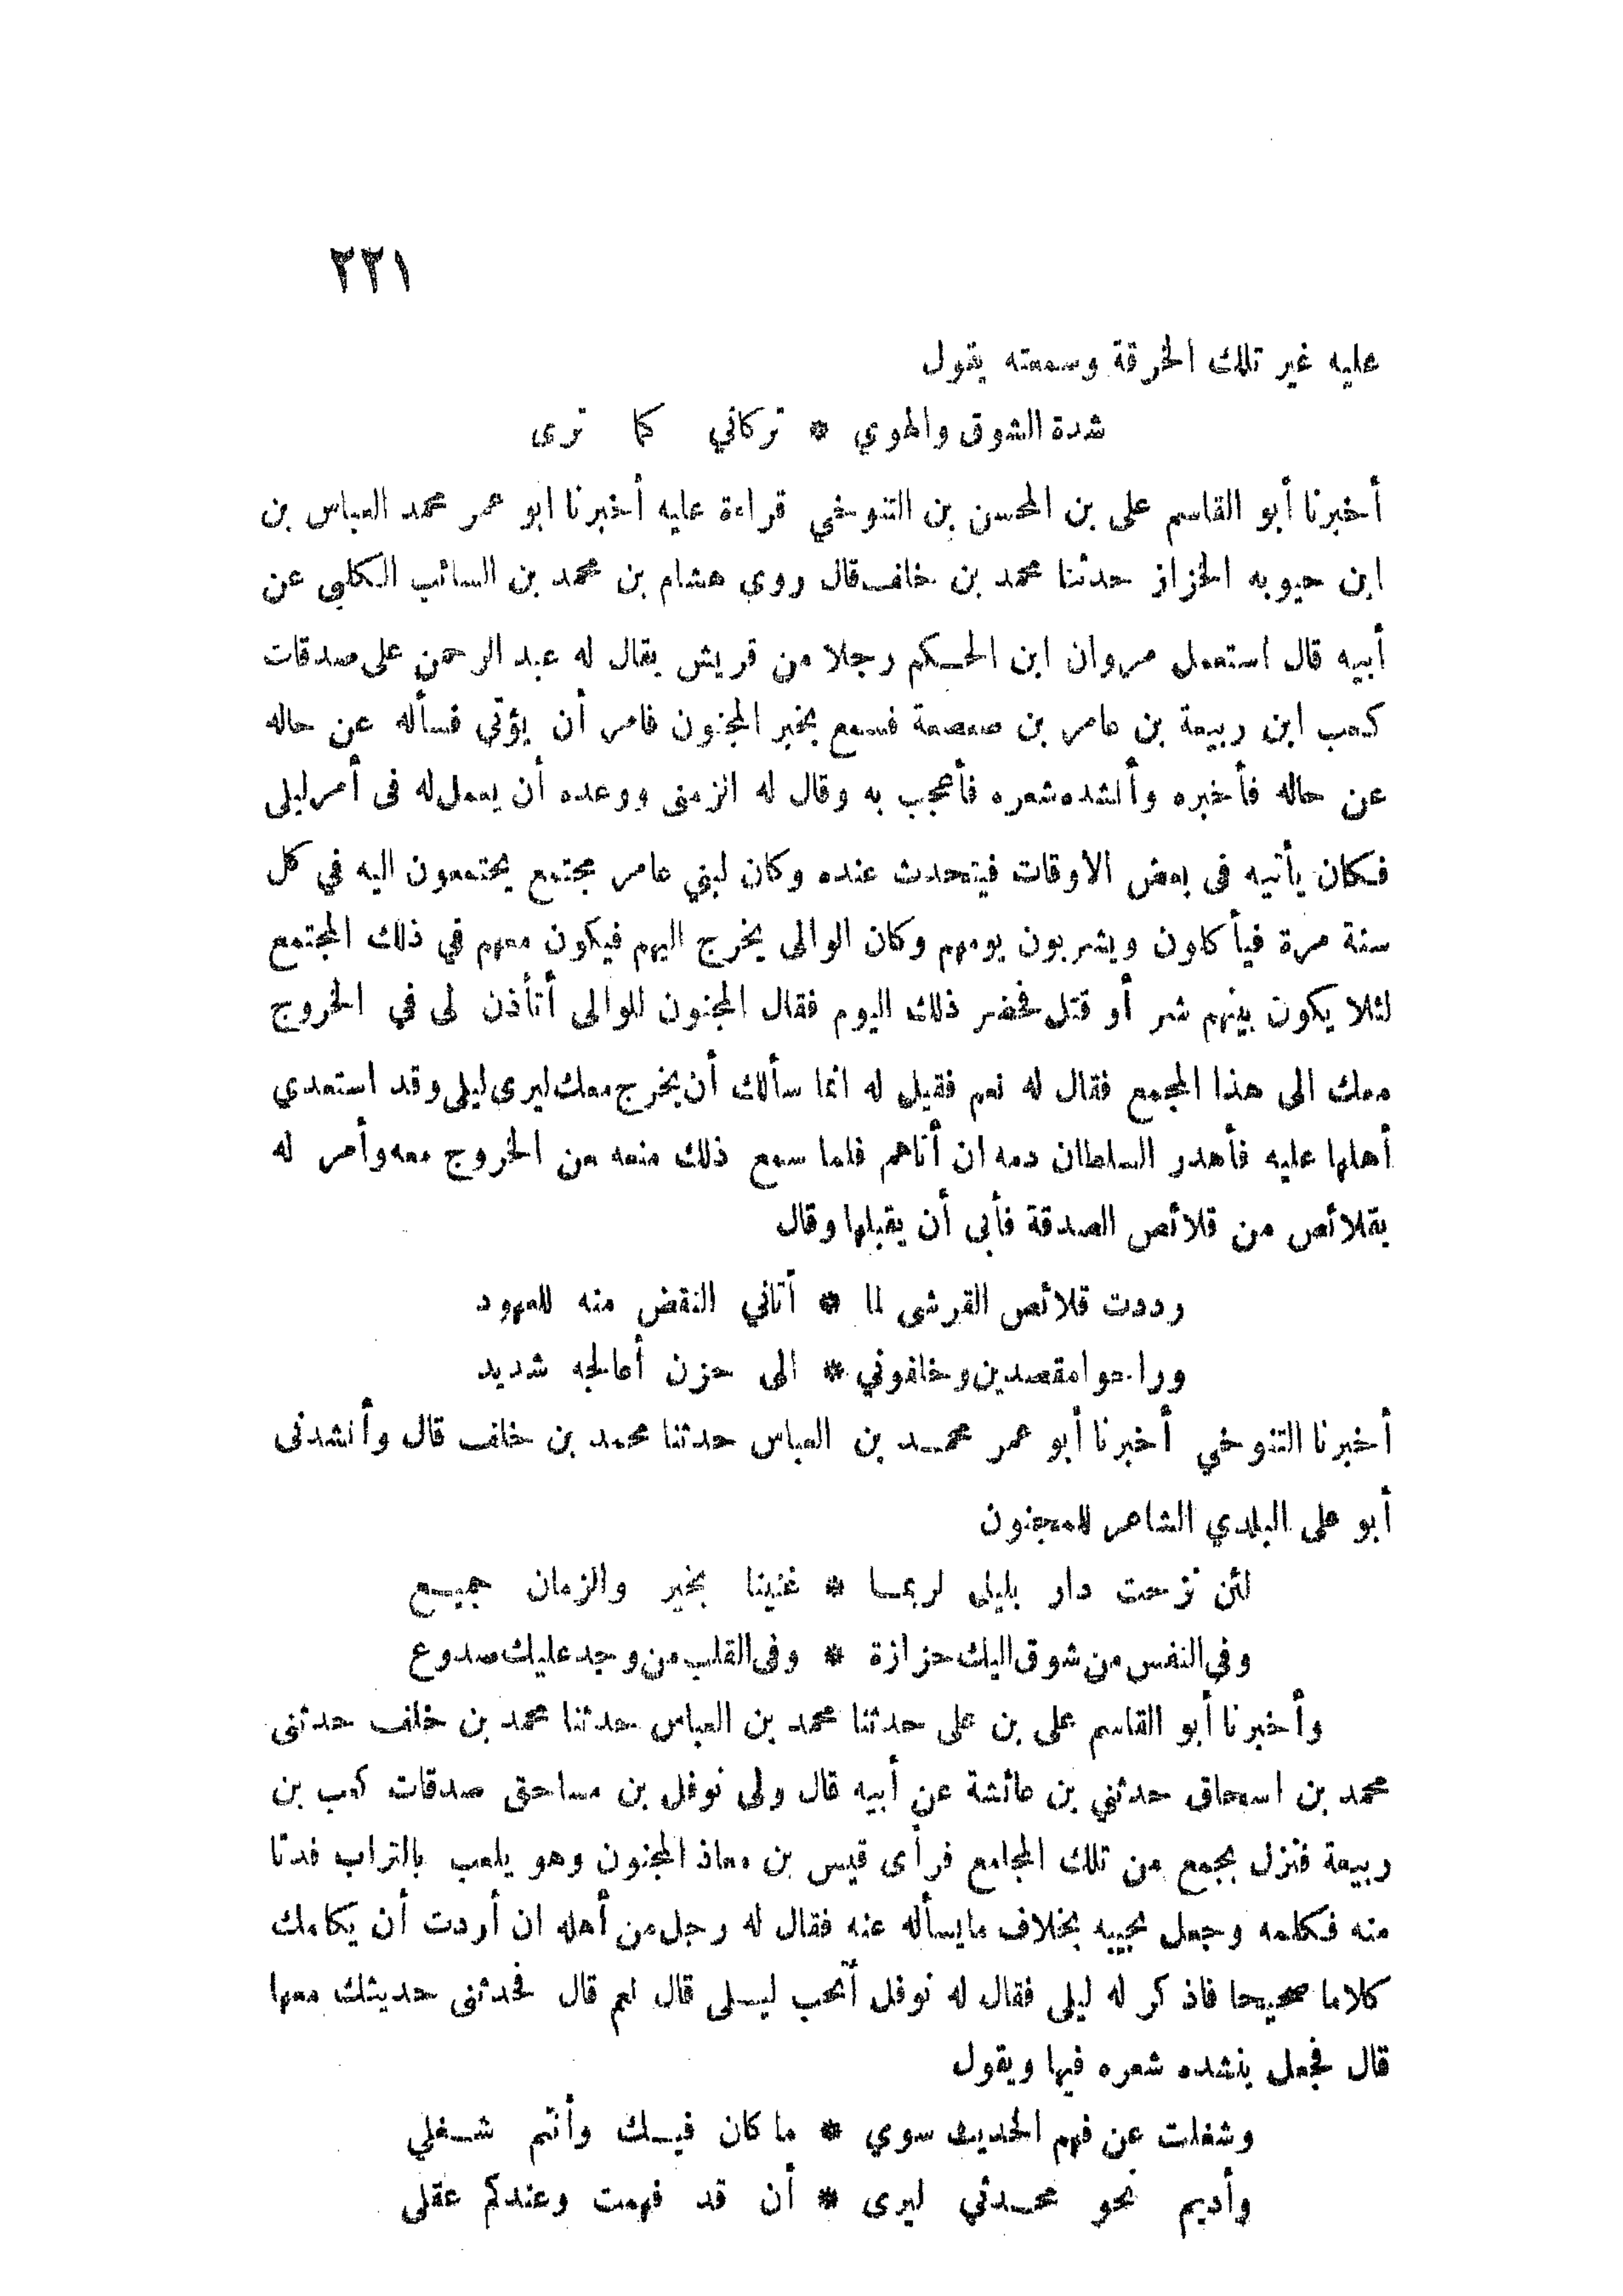 ٢٢١
عليه غير تلك الخرقة وسمعته يقول
شدة الشوق والهوي * تركاني كما ترى
أخبرنا أبو القاسم على بن المحسن بن التنوخي قراءة عليه أخبرنا ابو عمر محمد العباس بن
ابن حيويه الخزاز حدثنا محمد بن خلف قال روي هشام بن محمد بن السائب الكلبي عن
أبيه قال استعمل مروان ابن الحكم رجلا من قريش يقال له عبد الرحمن على صدقات
كعب ابن ربيعة بن عامر بن صعصعة فسمع بخبر المجنون فامر أن يؤتي فسأله عن حاله
عن حاله فأخبره وأنشده شعره فأعجب به وقال له الزمنى ووعده أن يعمل له فى أمر ليلى
فكان يأتيه فى بعض الأوقات فيتحدث عنده وكان لبني عامر مجتمع يجتمعون اليه في كل
سنة مرة فيأكلون ويشربون يومهم وكان الوالى يخرج اليهم فيكون معهم في ذلك المجتمع
لئلا يكون بينهم شر أو قتل فحضر ذلك اليوم فقال المجنون للوالى أتأذن لى في الخروج
معك الى هذا المجمع فقال له نعم فقيل له انما سألك أن يخرج معك ليرى ليلى وقد استعدي
أهلها عليه فأهدر السلطان دمه ان أتاهم فلما سمع ذلك منعه من الخروج معه وأمر له
بقلائص من قلائص الصدقة فأبى أن يقبلها وقال
رددت قلائص القرشى لما * أتاني النقض منه للعهود
وراحوا مقصدين وخلفوني * الى حزن أعالجه شديد
أخبرنا التنوخي أخبرنا أبو عمر محمد بن العباس حدثنا محمد بن خلف قال وأنشدنى
أبو على البلدي الشاعر للمجنون
لئن نزحت دار بليلى لربما * غنينا بخير والزمان جميع
وفى النفس من شوق اليك حزازة * وفى القلب من وجد عليك صدوع
وأخبرنا أبو القاسم على بن على حدثنا محمد بن العباس حدثنا محمد بن خلف حدثنى
محمد بن اسحاق حدثني بن عائشة عن أبيه قال ولى نوفل بن مساحق صدقات كعب بن
ربيعة فنزل بجمع من تلك المجامع فرأى قيس بن معاذ المجنون وهو يلعب بالتراب فدنا
منه فكلمه وجعل يجيبه بخلاف ما يسأله عنه فقال له رجل من أهله ان أردت أن يكلمك
كلاما صحيحا فاذكر له ليلى فقال له نوفل أتحب ليلى قال نعم قال فحدثنى حديثك معها
قال فجعل ينشده شعره فيها ويقول
وشغلت عن فهم الحديث سوي * ما كان فيك وأنتم شغلي
وأديم نحو محدثي ليرى * أن قد فهمت وعندكم عقلى